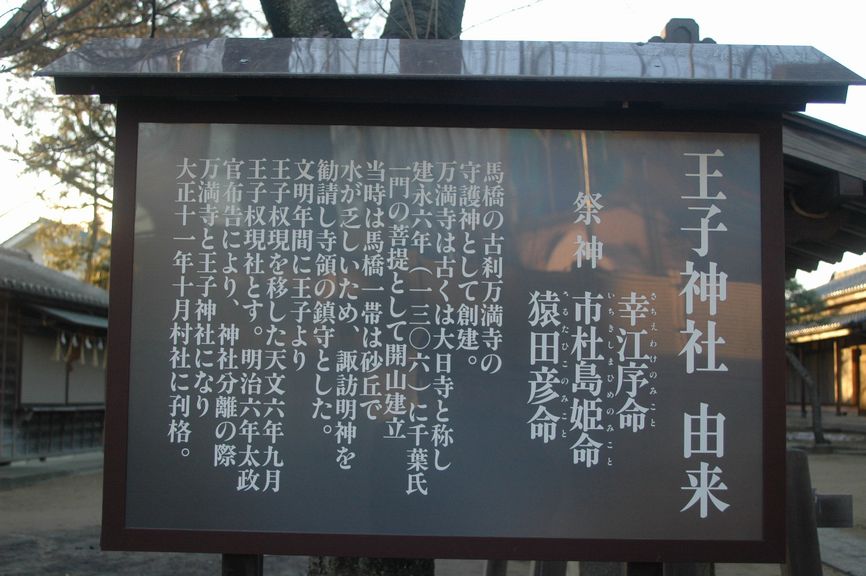 王子神社 由来
祭神
幸江序命
さちえわけのみこと
市杜島姫命
いちきしまひめのみこと
猿田彦命
さるたひこのみこと
馬橋の古刹万満寺の
守護神として創建。
万満寺は古くは大日寺と称し
建永六年(一三〇六)に千葉氏
一門の菩提として開山建立
当時は馬橋一帯は砂丘で
水が乏しいため、諏訪明神を
勧請し寺領の鎮守とした。
文明年間に王子より
王子权現を移した天文六年九月
王子权現社とす。明治六年太政
官布告により、神社分離の際
万満寺と王子神社になり
大正十一年十月村社に刋格。